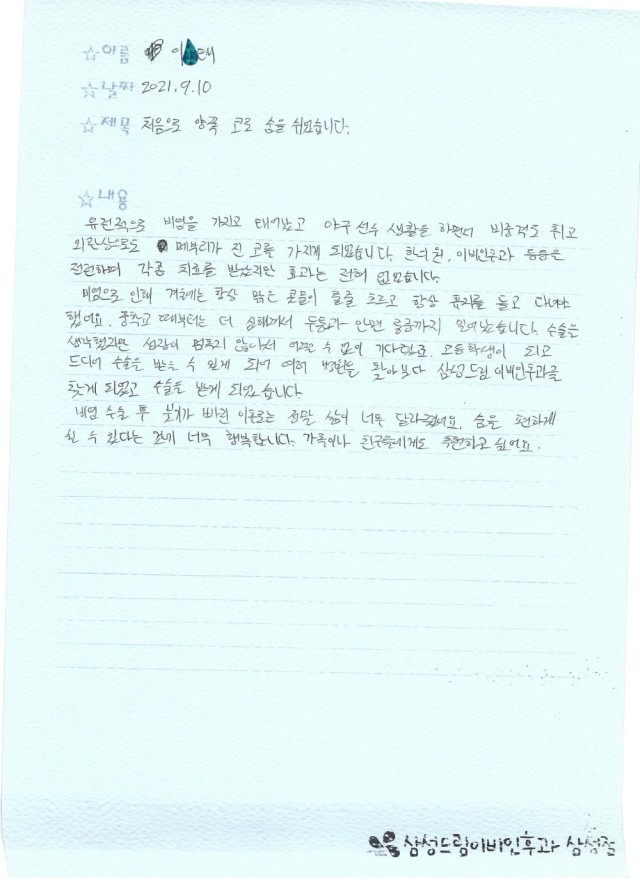 ☆이름 이 래
☆날짜 2021.9.10
☆제목 처음으로 양쪽 코로 숨을 쉬었습니다.
☆내용
유전적으로 비염을 가지고 태어났고 야구 선수 생활을 하면서 비중격도 휘고
외관상으로도 메부리가 진 코를 가지게 되었습니다. 한의원, 이비인후과 등등은
전전하며 각종 치료를 받았지만 효과는 전혀 없었습니다.
비염으로 인해 겨울에는 항상 맑은 콧물이 줄줄 흐르고 항상 휴지를 들고 다녀야
했어요. 중학교 때부터는 더 심해져서 두통과 안면 통증까지 있어났습니다. 수술을
생각했지만 성장이 멈추지 않아서 어쩔 수 없이 기다렸고. 고등학생이 되고
드디어 수술을 받을 수 있게 되어 여러 병원을 찾아보다 삼성드림이비인후과를
찾게 되었고 수술을 받게 되었습니다.
비염 수술 후 붓기가 빠진 이후로는 정말 삶이 너무 달라졌어요. 숨을 편하게
쉴 수 있다는 것이 너무 행복합니다. 가족이나 친구들에게도 추천하고 싶어요.
삼성드림이비인후과 삼성점